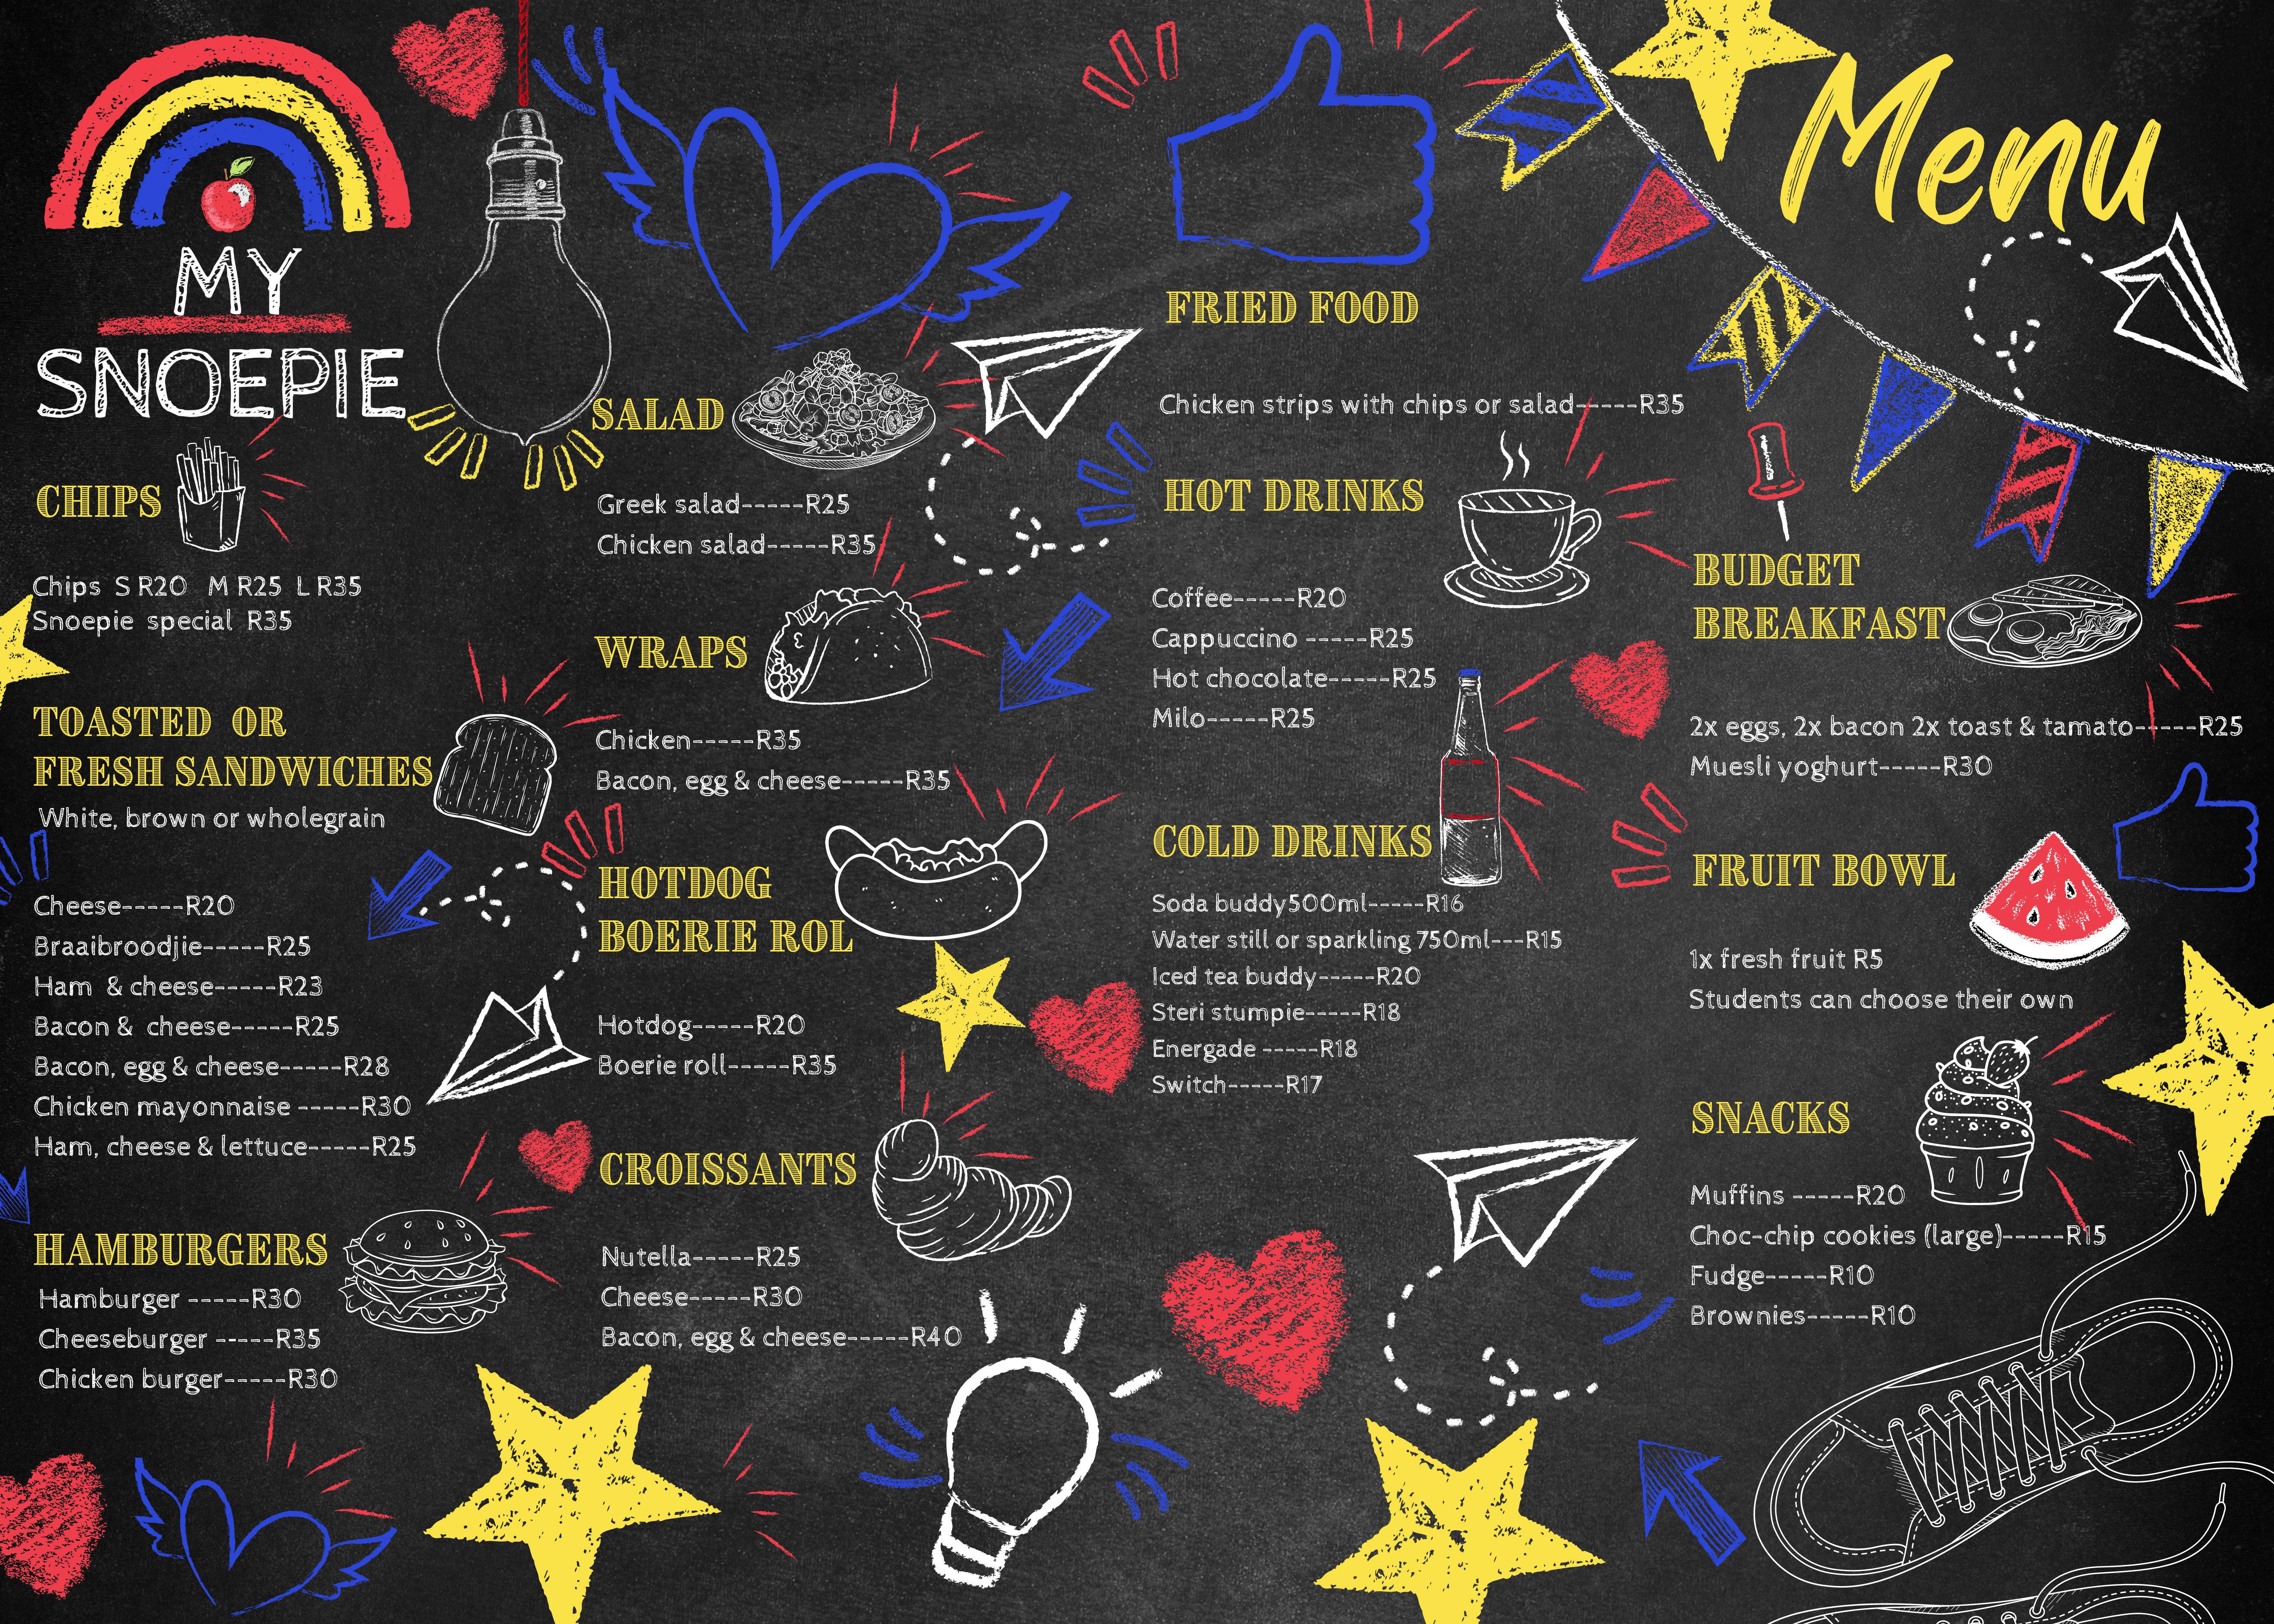 MY
SNOEPIE
CHIPS
Chips S R20 M R25 L R35
Snoepie special R35
TOASTED OR
FRESH SANDWICHES
White, brown or wholegrain
Cheese-----R20
Braaibroodjie-----R25
Ham & cheese-----R23
Bacon & cheese-----R25
Bacon, egg & cheese-----R28
Chicken mayonnaise -----R30
Ham, cheese & lettuce-----R25
HAMBURGERS
Hamburger -----R30
Cheeseburger -----R35
Chicken burger-----R30
SALAD
Greek salad-----R25
Chicken salad-----R35
WRAPS
Chicken-----R35
Bacon, egg & cheese-----R35
HOTDOG
BOERIE ROL
Hotdog-----R20
Boerie roll-----R35
CROISSANTS
Nutella-----R25
Cheese-----R30
Bacon, egg & cheese-----R40
FRIED FOOD
Chicken strips with chips or salad-----R35
HOT DRINKS
Coffee-----R20
Cappuccino -----R25
Hot chocolate-----R25
Milo-----R25
COLD DRINKS
Soda buddy500ml-----R16
Water still or sparkling 750ml---R15
Iced tea buddy-----R20
Steri stumpie-----R18
Energade -----R18
Switch-----R17
Menu
BUDGET
BREAKFAST
2x eggs, 2x bacon 2x toast & tamato-----R25
Muesli yoghurt-----R30
FRUIT BOWL
1x fresh fruit R5
Students can choose their own
SNACKS
Muffins -----R20
Choc-chip cookies (large)-----R15
Fudge-----R10
Brownies-----R10